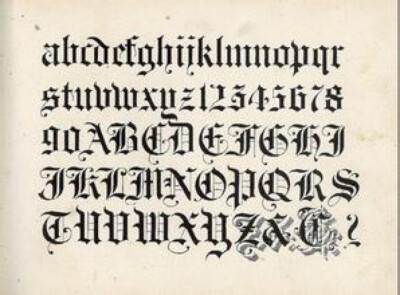 abcdefghijklmnopqr
stuvwxyz12345678
90ABCDEFGHI
JKLMNOPQRS
TUVWXYZ